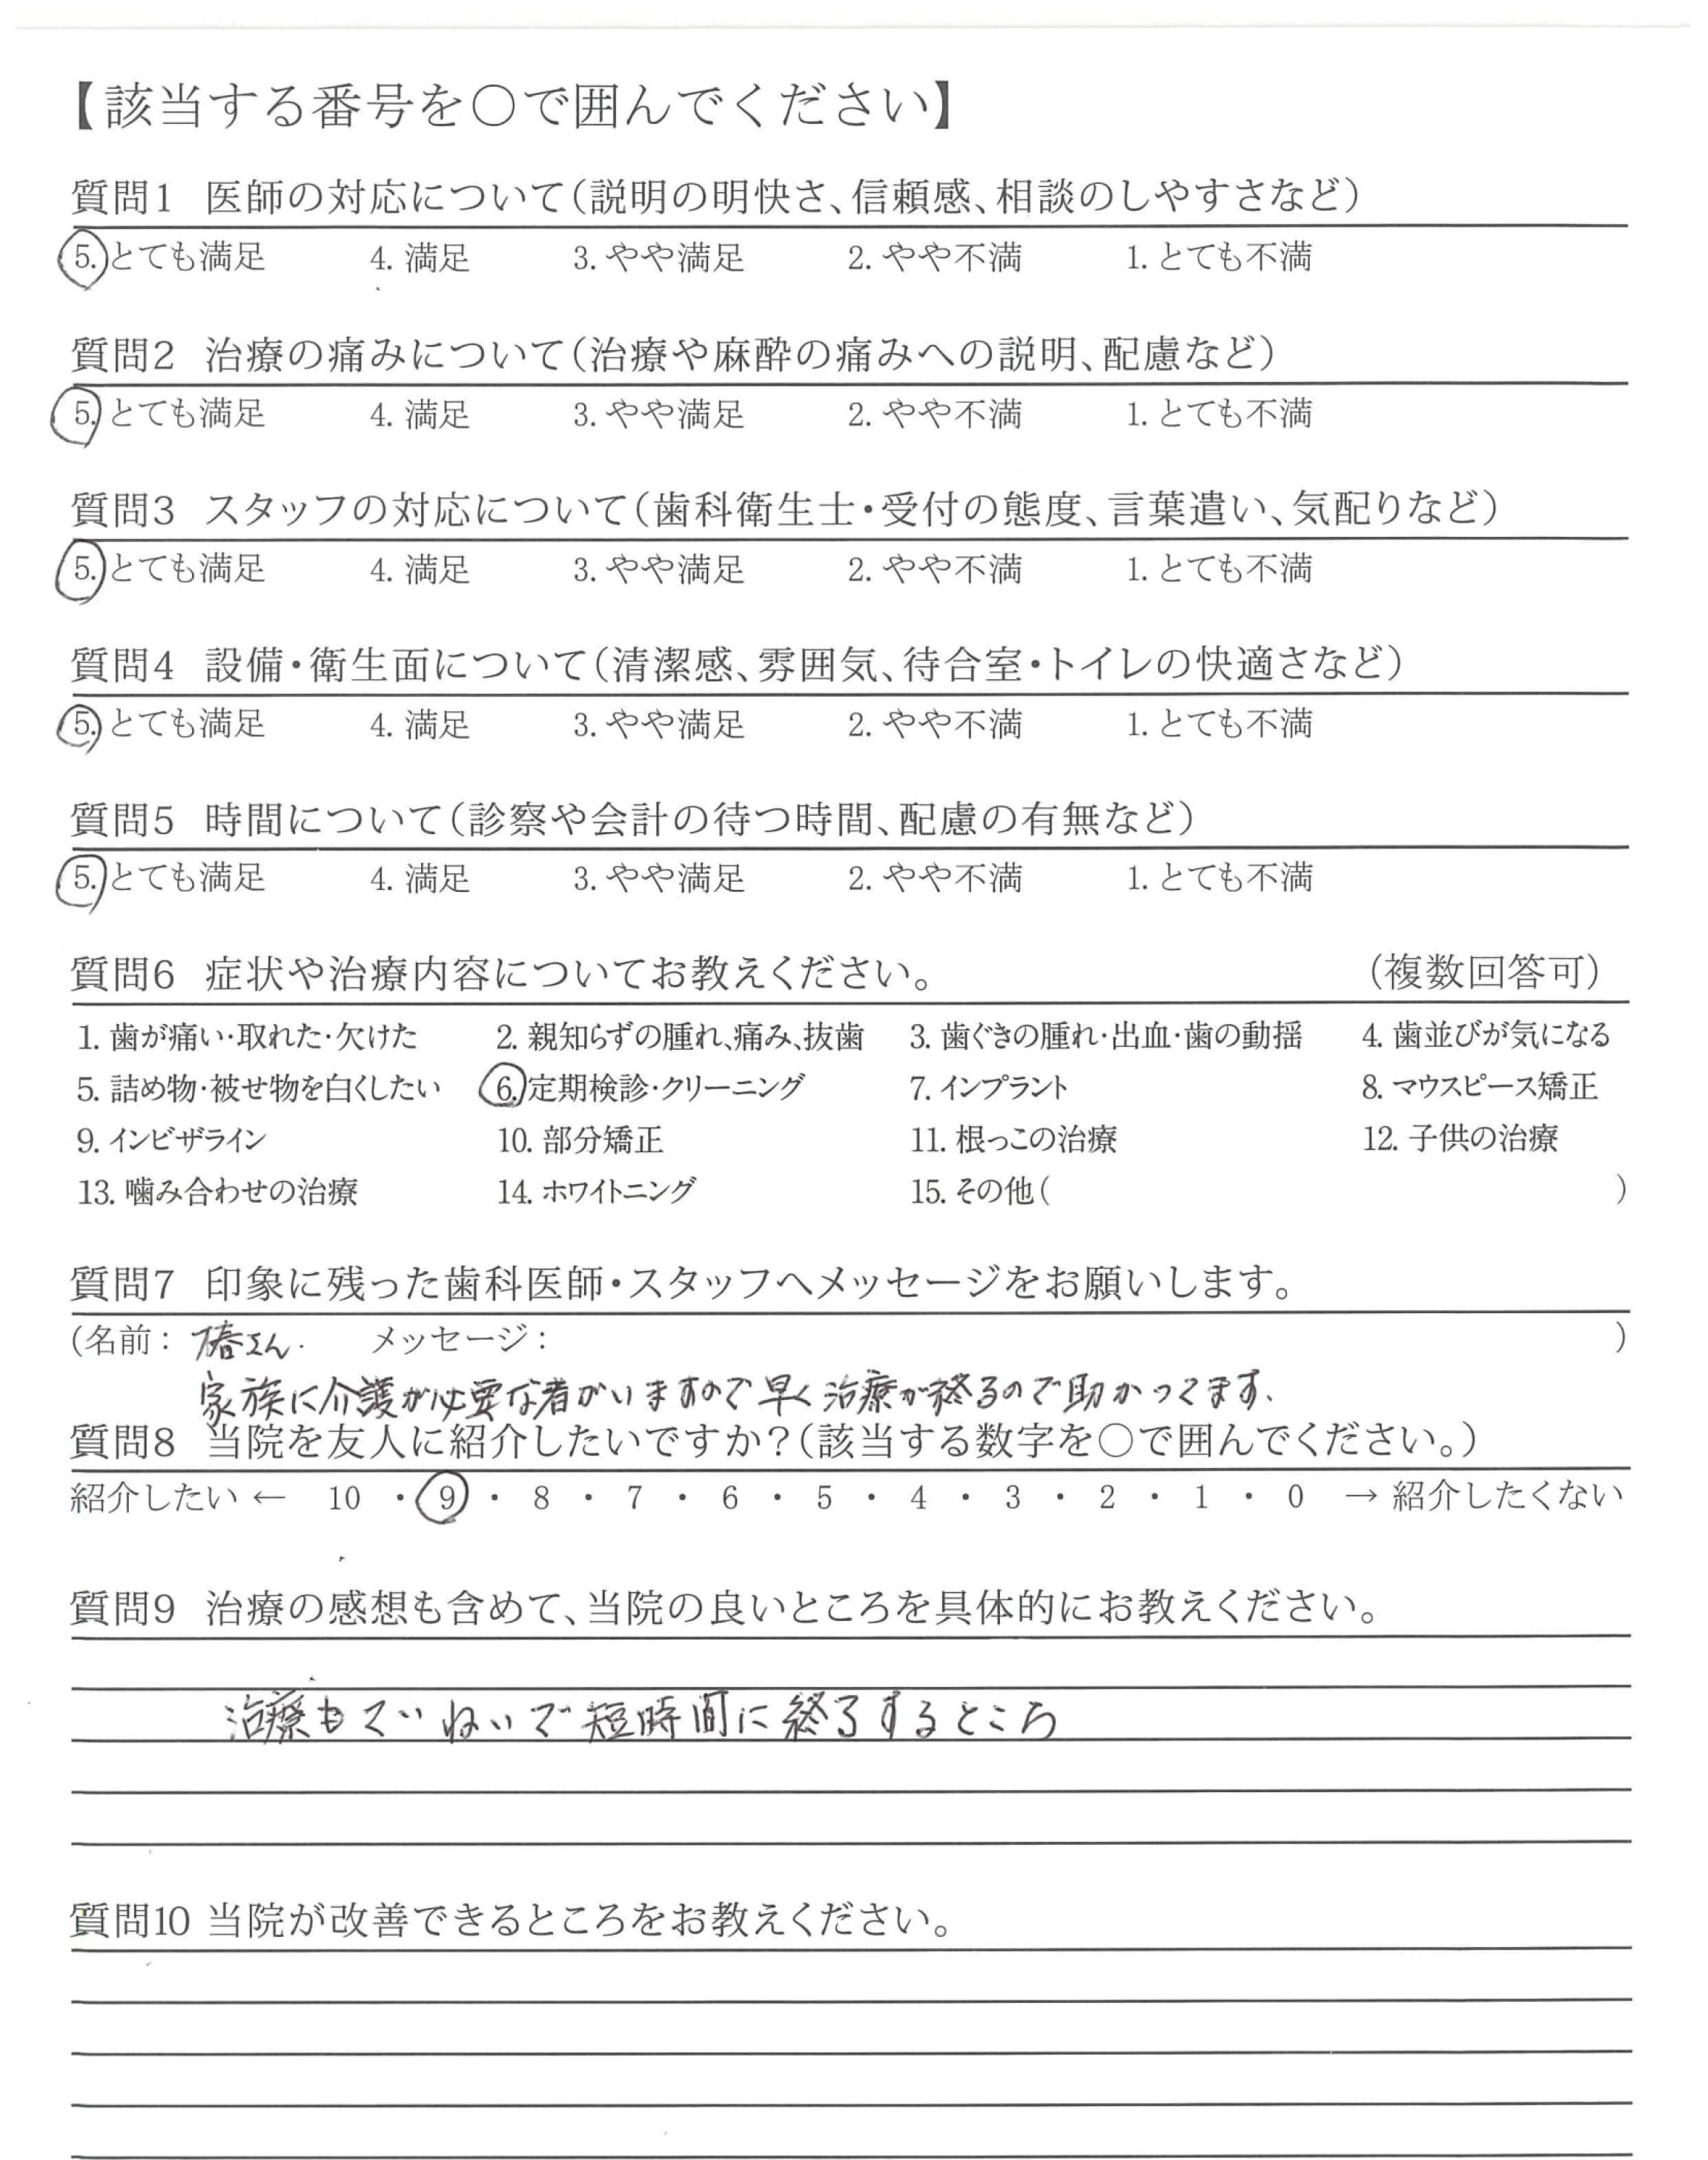 【該当する番号を○で囲んでください】
質問1 医師の対応について(説明の明快さ、信頼感、相談のしやすさなど)
5. とても満足 4. 満足 3. やや満足 2. やや不満 1. とても不満
質問2 治療の痛みについて(治療や麻酔の痛みへの説明、配慮など)
5. とても満足 4. 満足 3. やや満足 2. やや不満 1. とても不満
質問3 スタッフの対応について(歯科衛生士・受付の態度、言葉遣い、気配りなど)
5. とても満足 4. 満足 3. やや満足 2. やや不満 1. とても不満
質問4 設備・衛生面について(清潔感、雰囲気、待合室・トイレの快適さなど)
5. とても満足 4. 満足 3. やや満足 2. やや不満 1. とても不満
質問5 時間について(診察や会計の待つ時間、配慮の有無など)
5. とても満足 4. 満足 3. やや満足 2. やや不満 1. とても不満
質問6 症状や治療内容についてお教えください。 (複数回答可)
1. 歯が痛い・取れた・欠けた 2. 親知らずの腫れ、痛み、抜歯 3. 歯ぐきの腫れ・出血・歯の動揺 4. 歯並びが気になる
5. 詰め物・被せ物を白くしたい 6. 定期検診・クリーニング 7. インプラント 8. マウスピース矯正
9. インビザライン 10. 部分矯正 11. 根っこの治療 12. 子供の治療
13. 噛み合わせの治療 14. ホワイトニング 15. その他( )
質問7 印象に残った歯科医師・スタッフへメッセージをお願いします。
(名前: 椿さん. メッセージ: )
家族に介護が必要な者がいますので早く治療が終るので助かってます.
質問8 当院を友人に紹介したいですか?(該当する数字を○で囲んでください。)
紹介したい ← 10 ・ 9 ・ 8 ・ 7 ・ 6 ・ 5 ・ 4 ・ 3 ・ 2 ・ 1 ・ 0 → 紹介したくない
質問9 治療の感想も含めて、当院の良いところを具体的にお教えください。
治療もていねいで短時間に終了するところ
質問10 当院が改善できるところをお教えください。